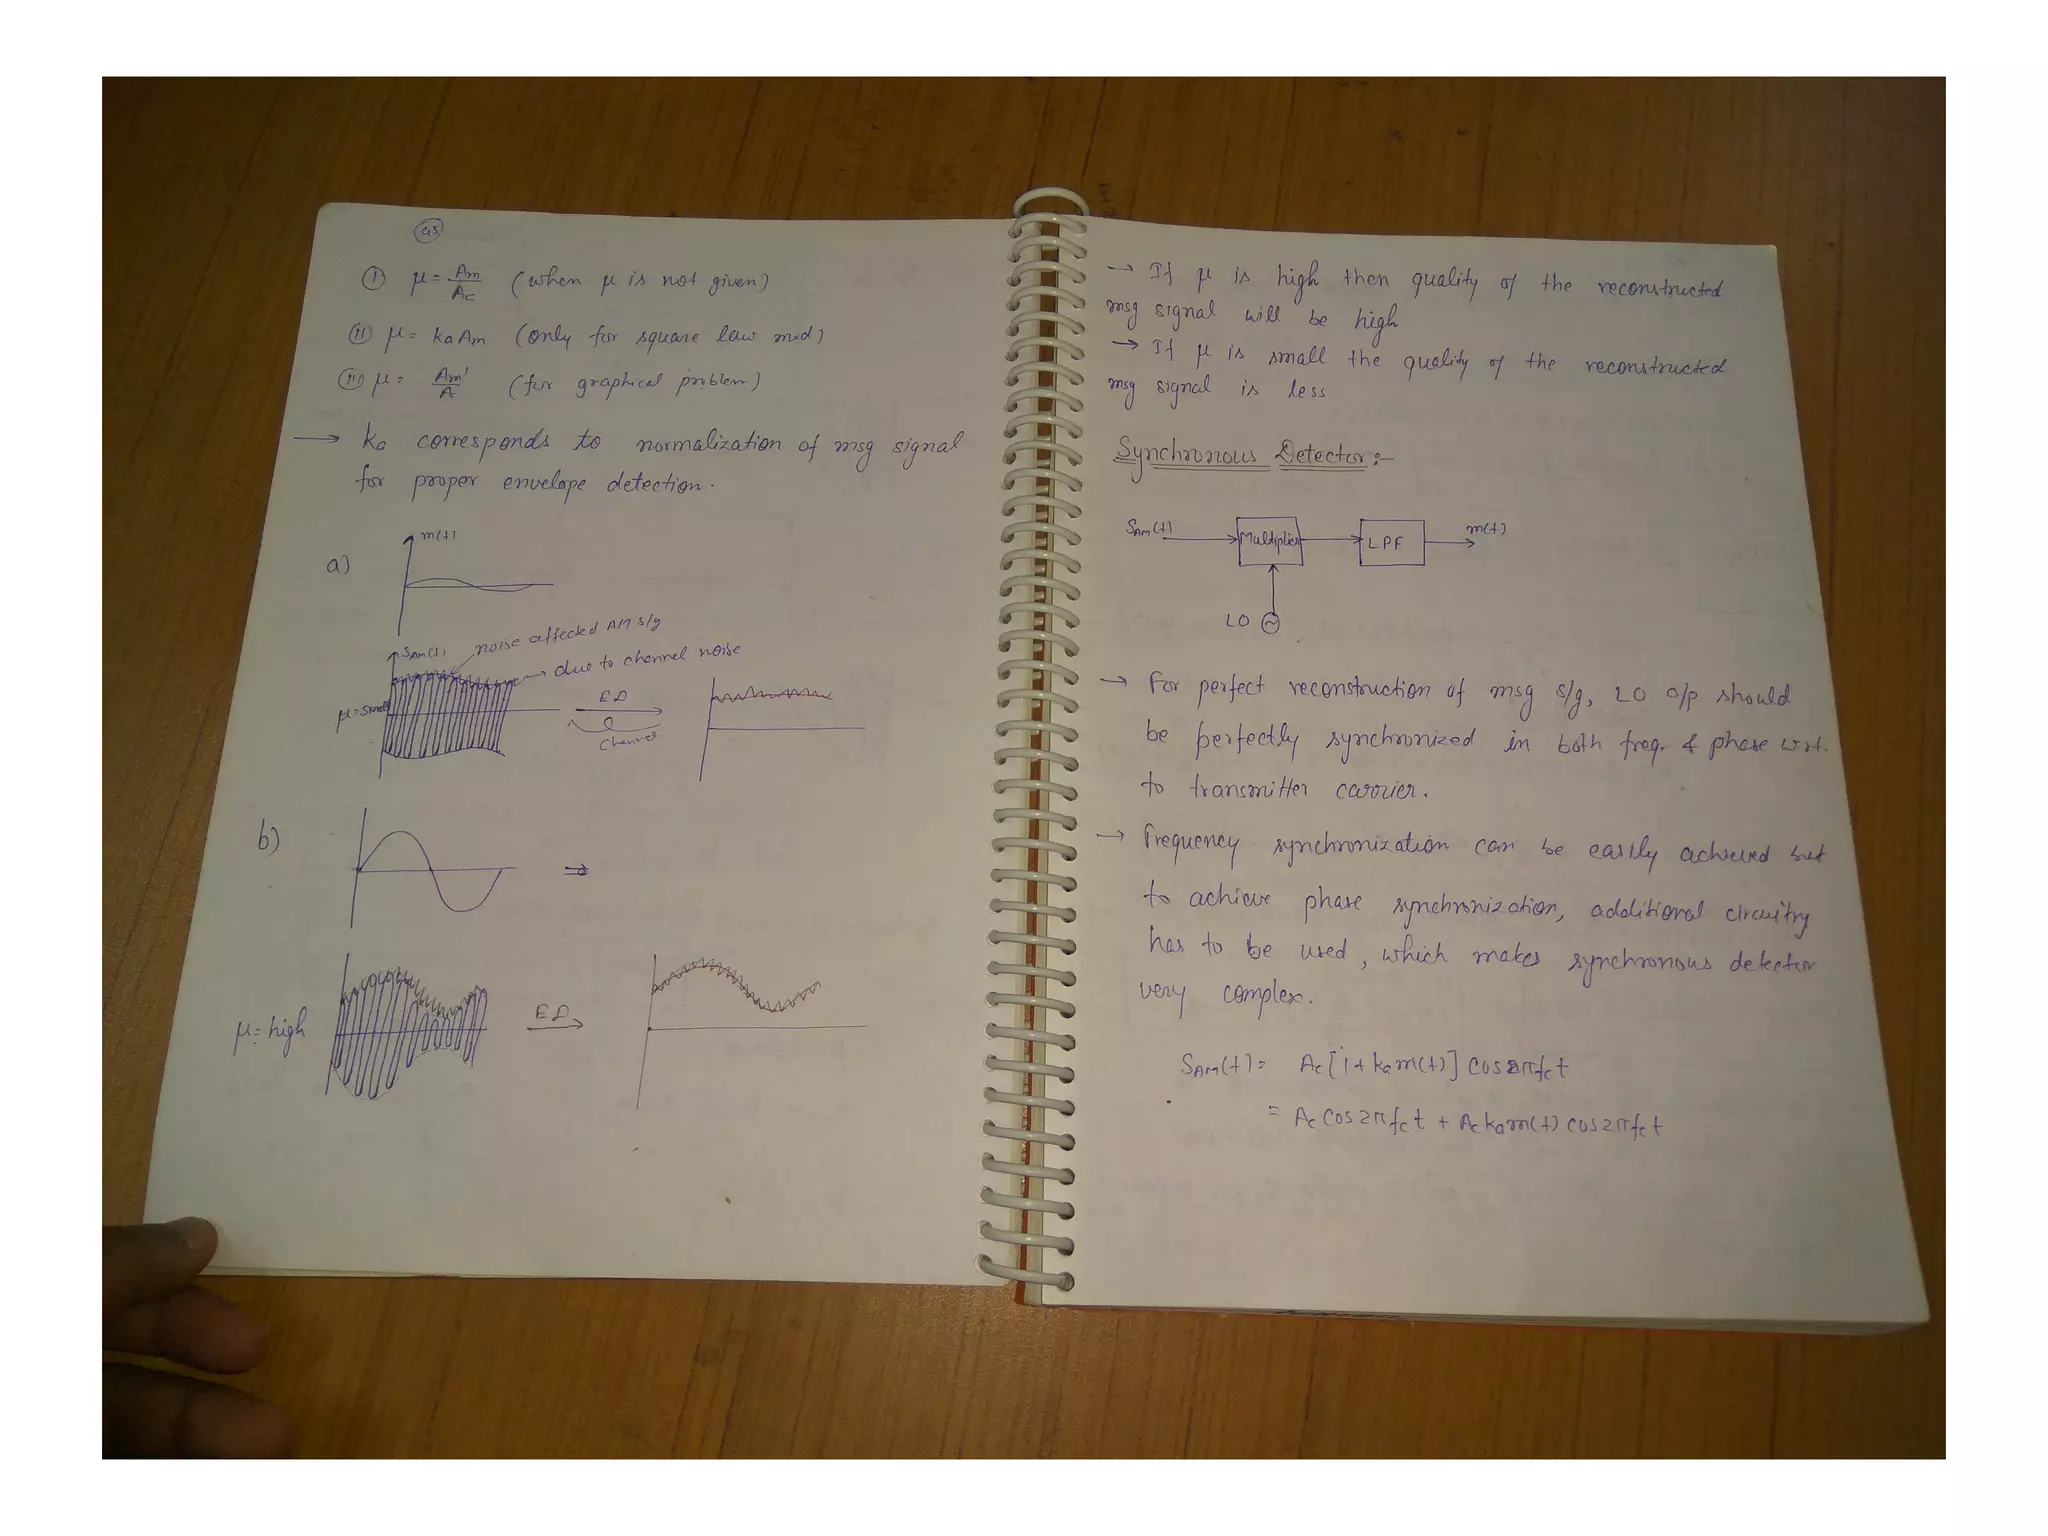 45
(i) μ = Am/Ac (when μ is not given)
(ii) μ = kaAm (only for square law mod)
(iii) μ = Am'/Ac (for graphical problem)
→ ka corresponds to normalization of msg signal
for proper envelope detection.
a)
m(t)
SAM(t)
noise affected AM s/g
due to channel noise
μ=small
ED
channel
b)
⇒
μ=high
ED
→ If μ is high then quality of the reconstructed
msg signal will be high
→ If μ is small the quality of the reconstructed
msg signal is less
Synchronous Detector:-
SAM(t)
Multiplier
LPF
m(t)
LO
→ For perfect reconstruction of msg s/g, LO o/p should
be perfectly synchronized in both freq. & phase w.r.t.
to transmitter carrier.
→ Frequency synchronization can be easily achieved but
to achieve phase synchronization, additional circuitry
has to be used, which makes synchronous detector
very complex.
SAM(t) = Ac[1+kam(t)] cos2πfct
= Ac cos2πfct + Ackam(t) cos2πfct